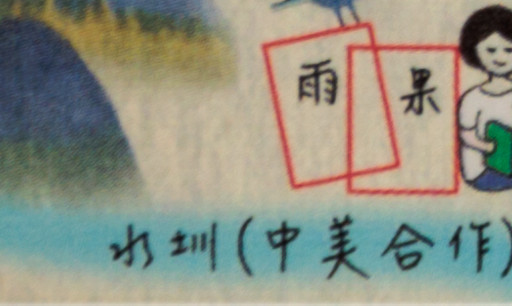 雨果
水圳(中美合作)